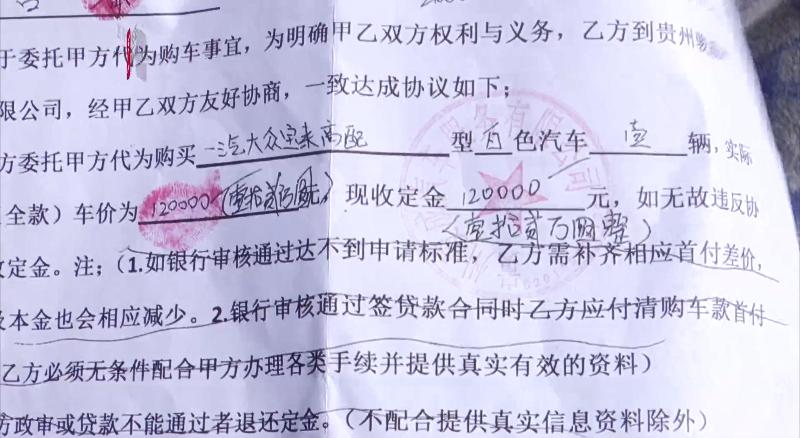 于委托甲方代为购车事宜，为明确甲乙双方权利与义务，乙方到贵州
限公司，经甲乙双方友好协商，一致达成协议如下；
方委托甲方代为购买一汽大众宝来高配型白色汽车壹辆，实际
全款）车价为120000（壹拾贰万圆）现收定金120000元，如无故违反协
（壹拾贰万圆整）
定金。注；（1.如银行审核通过达不到申请标准，乙方需补齐相应首付差价，
及本金也会相应减少。2.银行审核通过签贷款合同时乙方应付清购车款首付
乙方必须无条件配合甲方办理各类手续并提供真实有效的资料）
方政审或贷款不能通过者退还定金。（不配合提供真实信息资料除外）